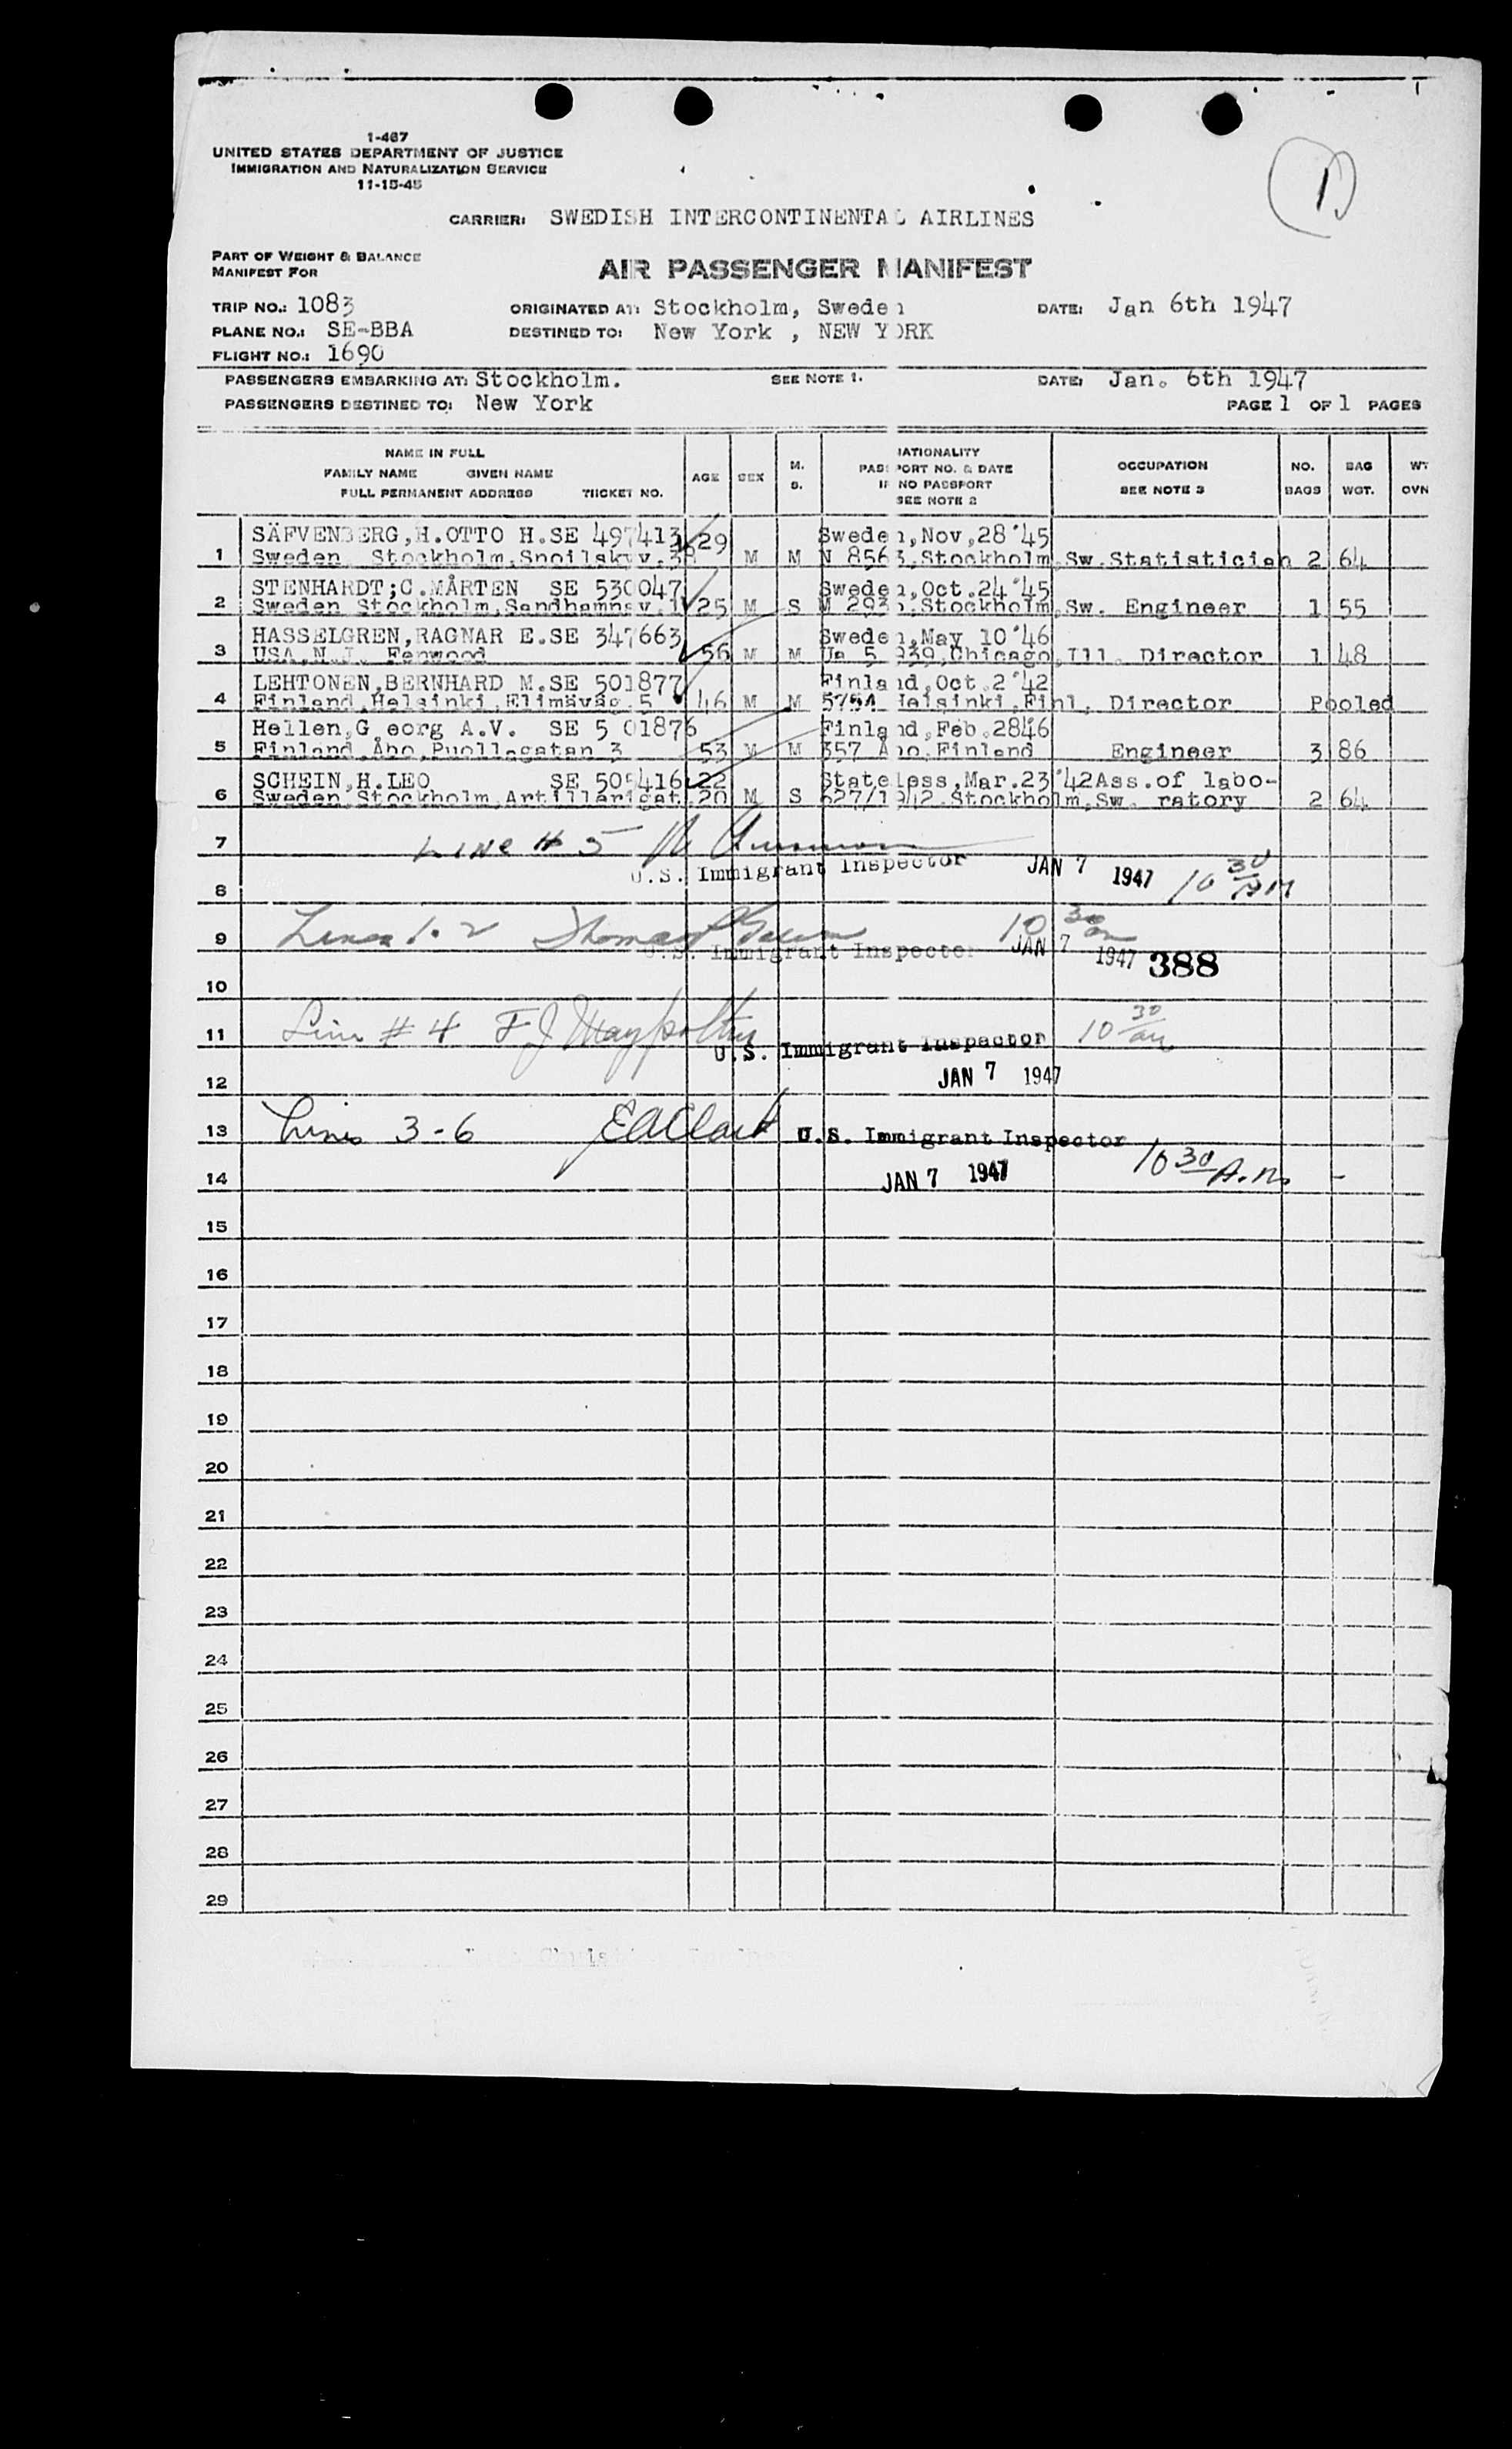 1-467
UNITED STATES DEPARTMENT OF JUSTICE
IMMIGRATION AND NATURALIZATION SERVICE
11-15-45
1
CARRIER: SWEDISH INTERCONTINENTAL AIRLINES
PART OF WEIGHT & BALANCE
MANIFEST FOR
AIR PASSENGER MANIFEST
TRIP NO.: 1083 ORIGINATED AT: Stockholm, Sweden DATE: Jan 6th 1947
PLANE NO.: SE-BBA DESTINED TO: New York , NEW YORK
FLIGHT NO.: 1690
PASSENGERS EMBARKING AT: Stockholm. SEE NOTE 1. DATE: Jan. 6th 1947
PASSENGERS DESTINED TO: New York PAGE 1 OF 1 PAGES
NAME IN FULL
FAMILY NAME GIVEN NAME
FULL PERMANENT ADDRESS TICKET NO.
AGE SEX M. S.
NATIONALITY
PASSPORT NO. & DATE
IF NO PASSPORT
SEE NOTE 2
OCCUPATION
SEE NOTE 3
NO. BAGS
BAG WGT.
WT OVN
SÄFVENBERG,H.OTTO H.SE 497413 29 Sweden,Nov,28'45
1 Sweden, Stockholm,Snoilskyv.38 M M N 8563,Stockholm,Sw. Statistician 2 64
STENHARDT;C.MÅRTEN SE 530047 Sweden,Oct.24'45
2 Sweden Stockholm,Sandhamnsv. 25 M S Stockholm,Sw. Engineer 1 55
HASSELGREN,RAGNAR E.SE 347663 Sweden,May 10'46
3 USA,N.J. Fenwood 56 M M Chicago,Ill. Director 1 48
LEHTONEN,BERNHARD M.SE 501877 Finland,Oct.2'42
4 Finland,Helsinki,Elimäväg.5 46 M M 575A Helsinki,Finl. Director Pooled
Hellen,G eorg A.V. SE 5 01876 Finland,Feb.2846
5 Finland,Åbo,Puollagatan 3 53 M M 357 Åbo.Finland Engineer 3 86
SCHEIN,H.LEO SE 505416 22 Stateless,Mar.23'42 Ass.of labo-
6 Sweden,Stockholm,Artillerigat.20 M S 627/1942.Stockholm,Sw. ratory 2 64
7 LINE # 5
U.S. Immigrant Inspector JAN 7 1947 10 30 AM
8
9 Lines 1-2 Thomas 10 30 am
U.S. Immigrant Inspector JAN 7 1947 388
10
11 Line # 4 F J 10 30 am
U.S. Immigrant Inspector
12 JAN 7 1947
13 Lines 3-6 EAClark U.S. Immigrant Inspector
14 JAN 7 1947 10 30 A.M.
15
16
17
18
19
20
21
22
23
24
25
26
27
28
29